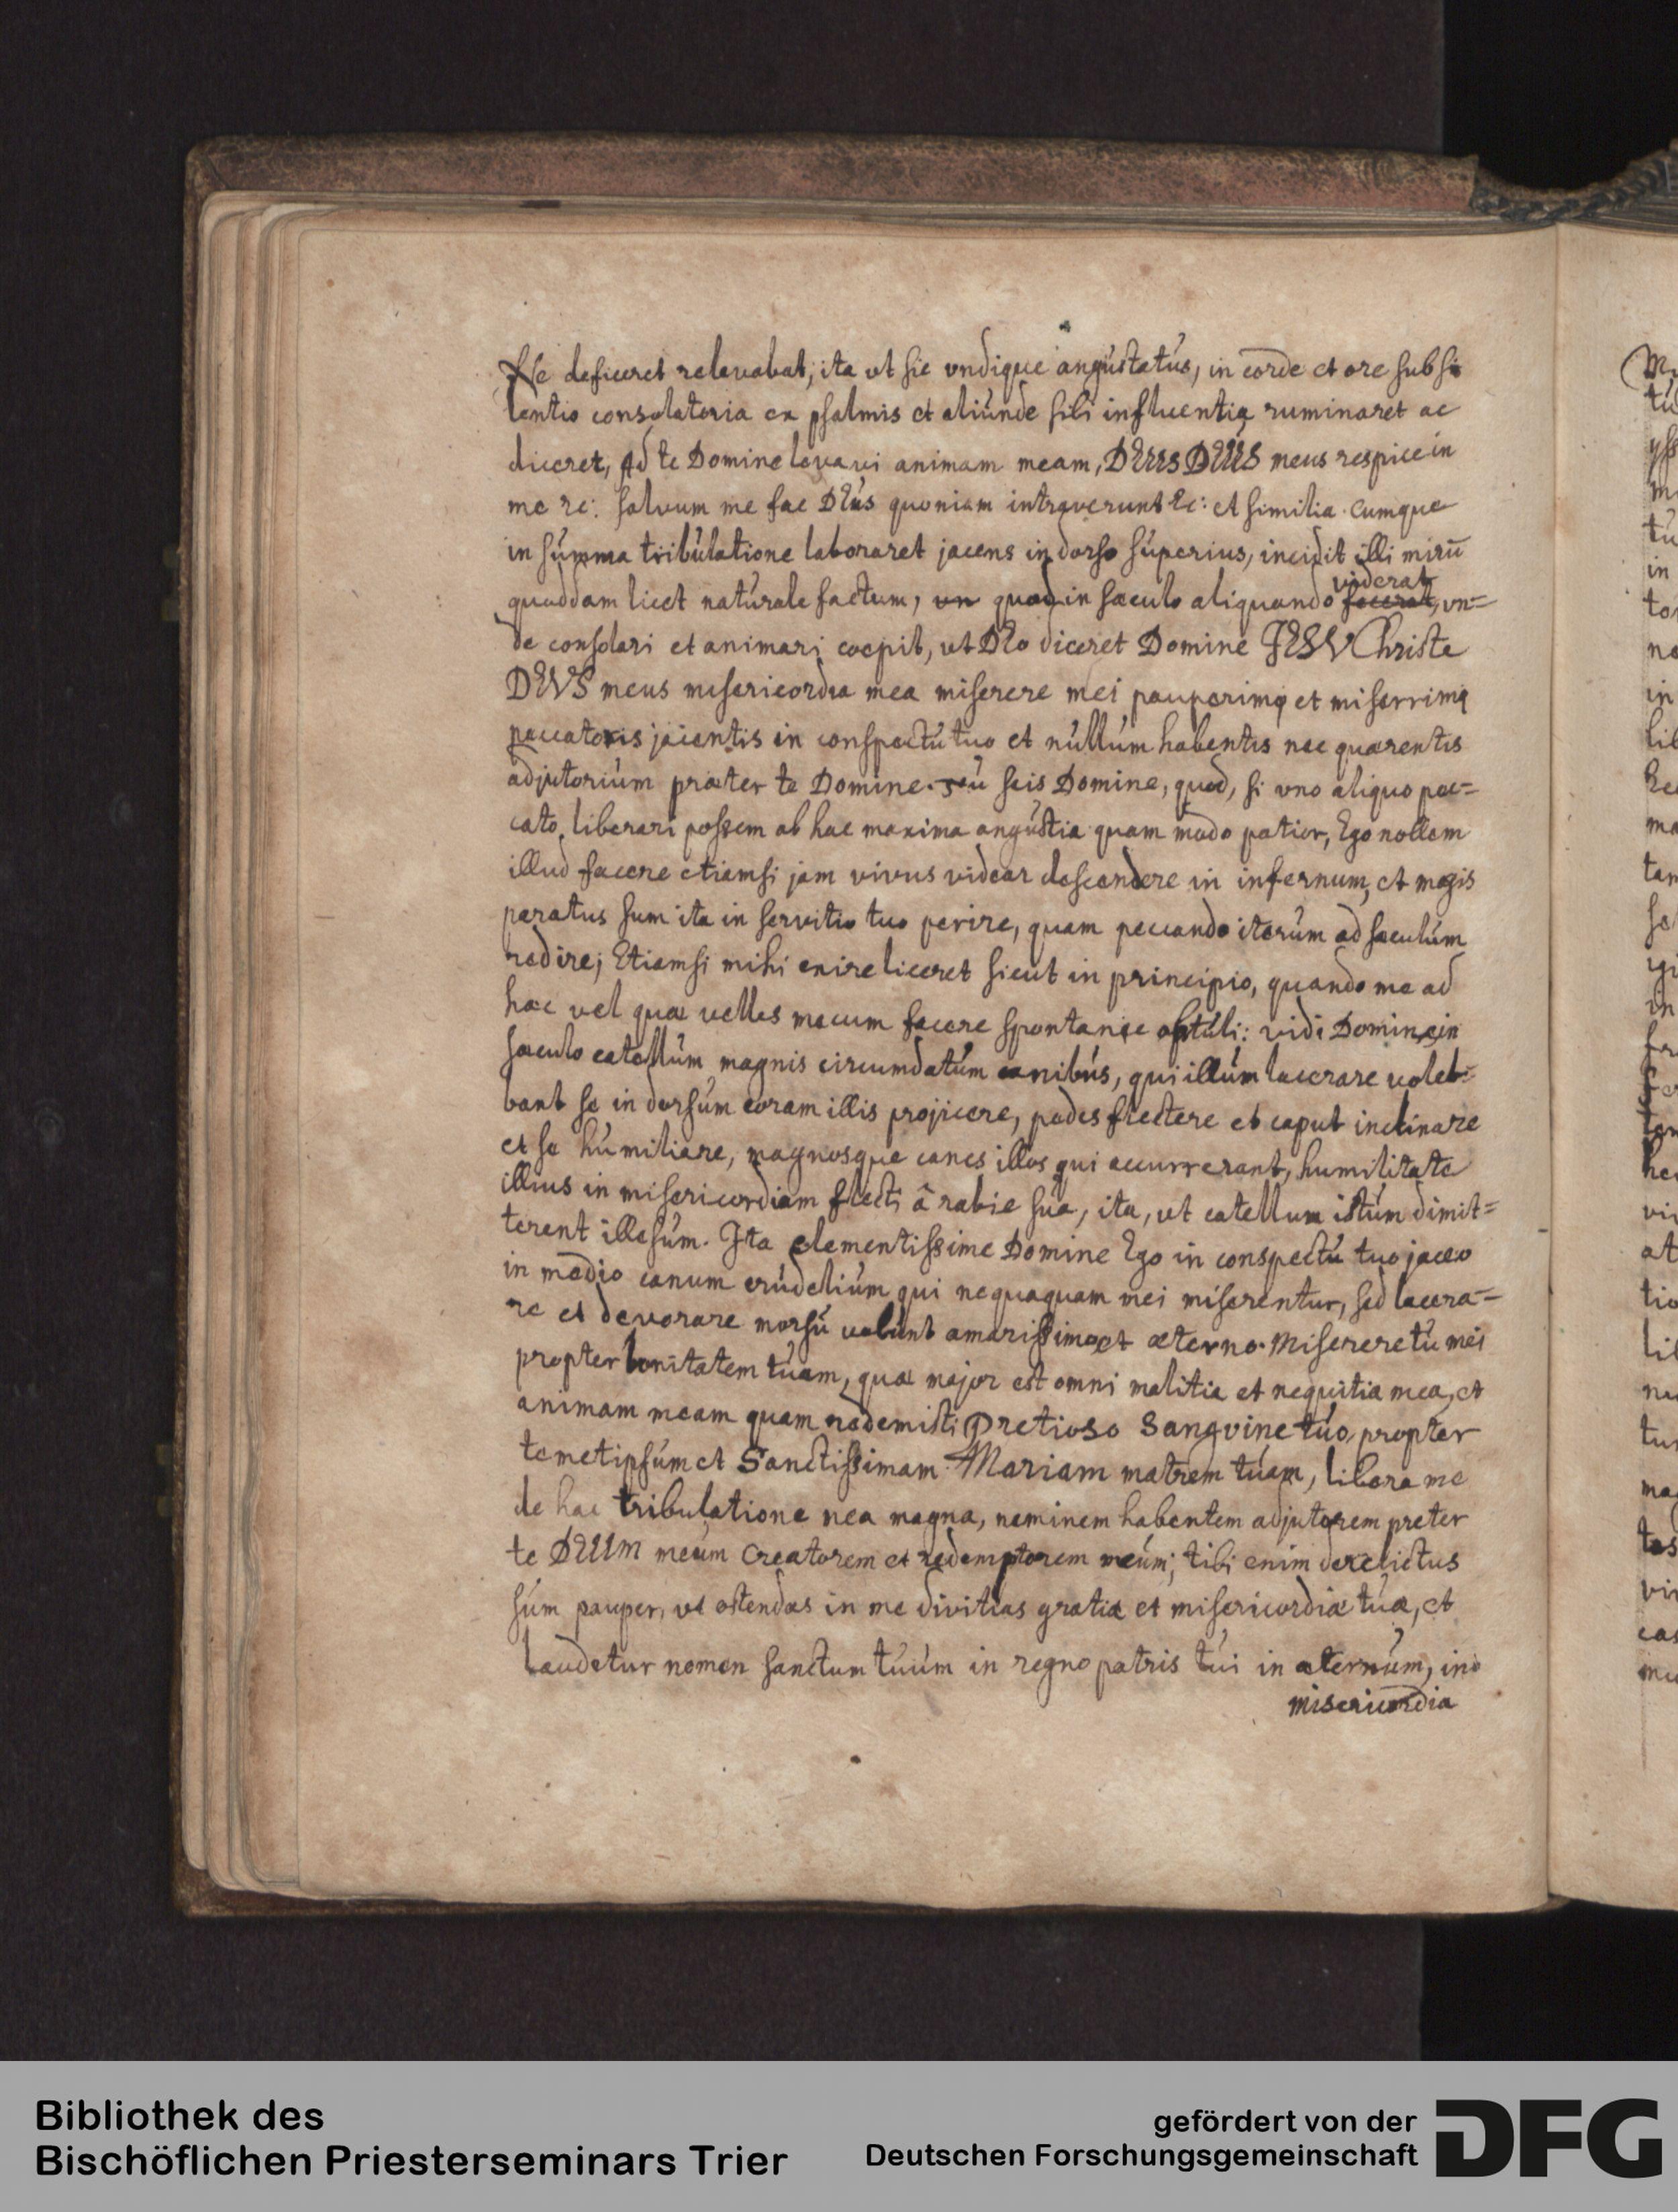 Ne deficeret relevabat, ita ut sic undique angustatus, in corde et ore sub si
lentio consolatoria ex psalmis et aliunde sibi influentia ruminaret ac
diceret, Ad te Domine levavi animam meam, DEUS DEUS meus respice in
me &c: salvum me fac DEus quoniam intraverunt &c: et similia. cumque
in summa tribulatione laboraret jacens in dorso superius, incidit illi mirū
viderat
quoddam licet naturale factum, un quod in sæculo aliquando fecerat, un=
de consolari et animari coepit, ut DEo diceret Domine JESV Christe
DEVS meus misericordia mea miserere mei pauperimę et miserrimę
peccatoris jacentis in conspectu tuo et nullum habentis nec quærentis
adjutorium præter te Domine. seu scis Domine, quod, si uno aliquo pec=
cato, liberari possem ab hac maxima angustia quam modo patior, Ego nollem
illud facere etiamsi jam vivus videar descendere in infernum, et magis
paratus sum ita in servitio tuo perire, quam peccando iterum ad sæculum
redire; Etiamsi mihi exire liceret sicut in principio, quando me ad
hæc vel quæ velles mecum facere spontanie obtuli: vidi Domine in
sæculo catellum magnis circumdatum canibus, qui illum lacerare voleb=
bant se in dorsum coram illis projicere, pedes flectere et caput inclinare
et se humiliare, magnosque canes illos qui accurrerant, humilitate
illius in misericordiam flecti â rabie sua, ita, ut catellum istum dimit=
terent illesum. Ita clementissime Domine Ego in conspectu tuo jaceo
in medio canum crudelium qui nequaquam mei miserentur, sed lacera=
re et devorare morsu volunt amarissimo et æterno. Miserere tu mei
propter bonitatem tuam, quæ major est omni malitia et nequitia mea, et
animam meam quam redemisti Pretioso Sangvine tuo, propter
temetipsum et Sanctissimam Mariam matrem tuam, libera me
de hac tribulatione mea magna, neminem habentem adjutorem preter
te DEUM meum Creatorem et redemptorem meum; tibi enim derelictus
sum pauper, ut ostendas in me divitias gratiæ et misericordiæ tuæ, et
laudetur nomen sanctum tuum in regno patris tui in æternum, in
misericordia
Bibliothek des
Bischöflichen Priesterseminars Trier
gefördert von der
Deutschen Forschungsgemeinschaft
DFG